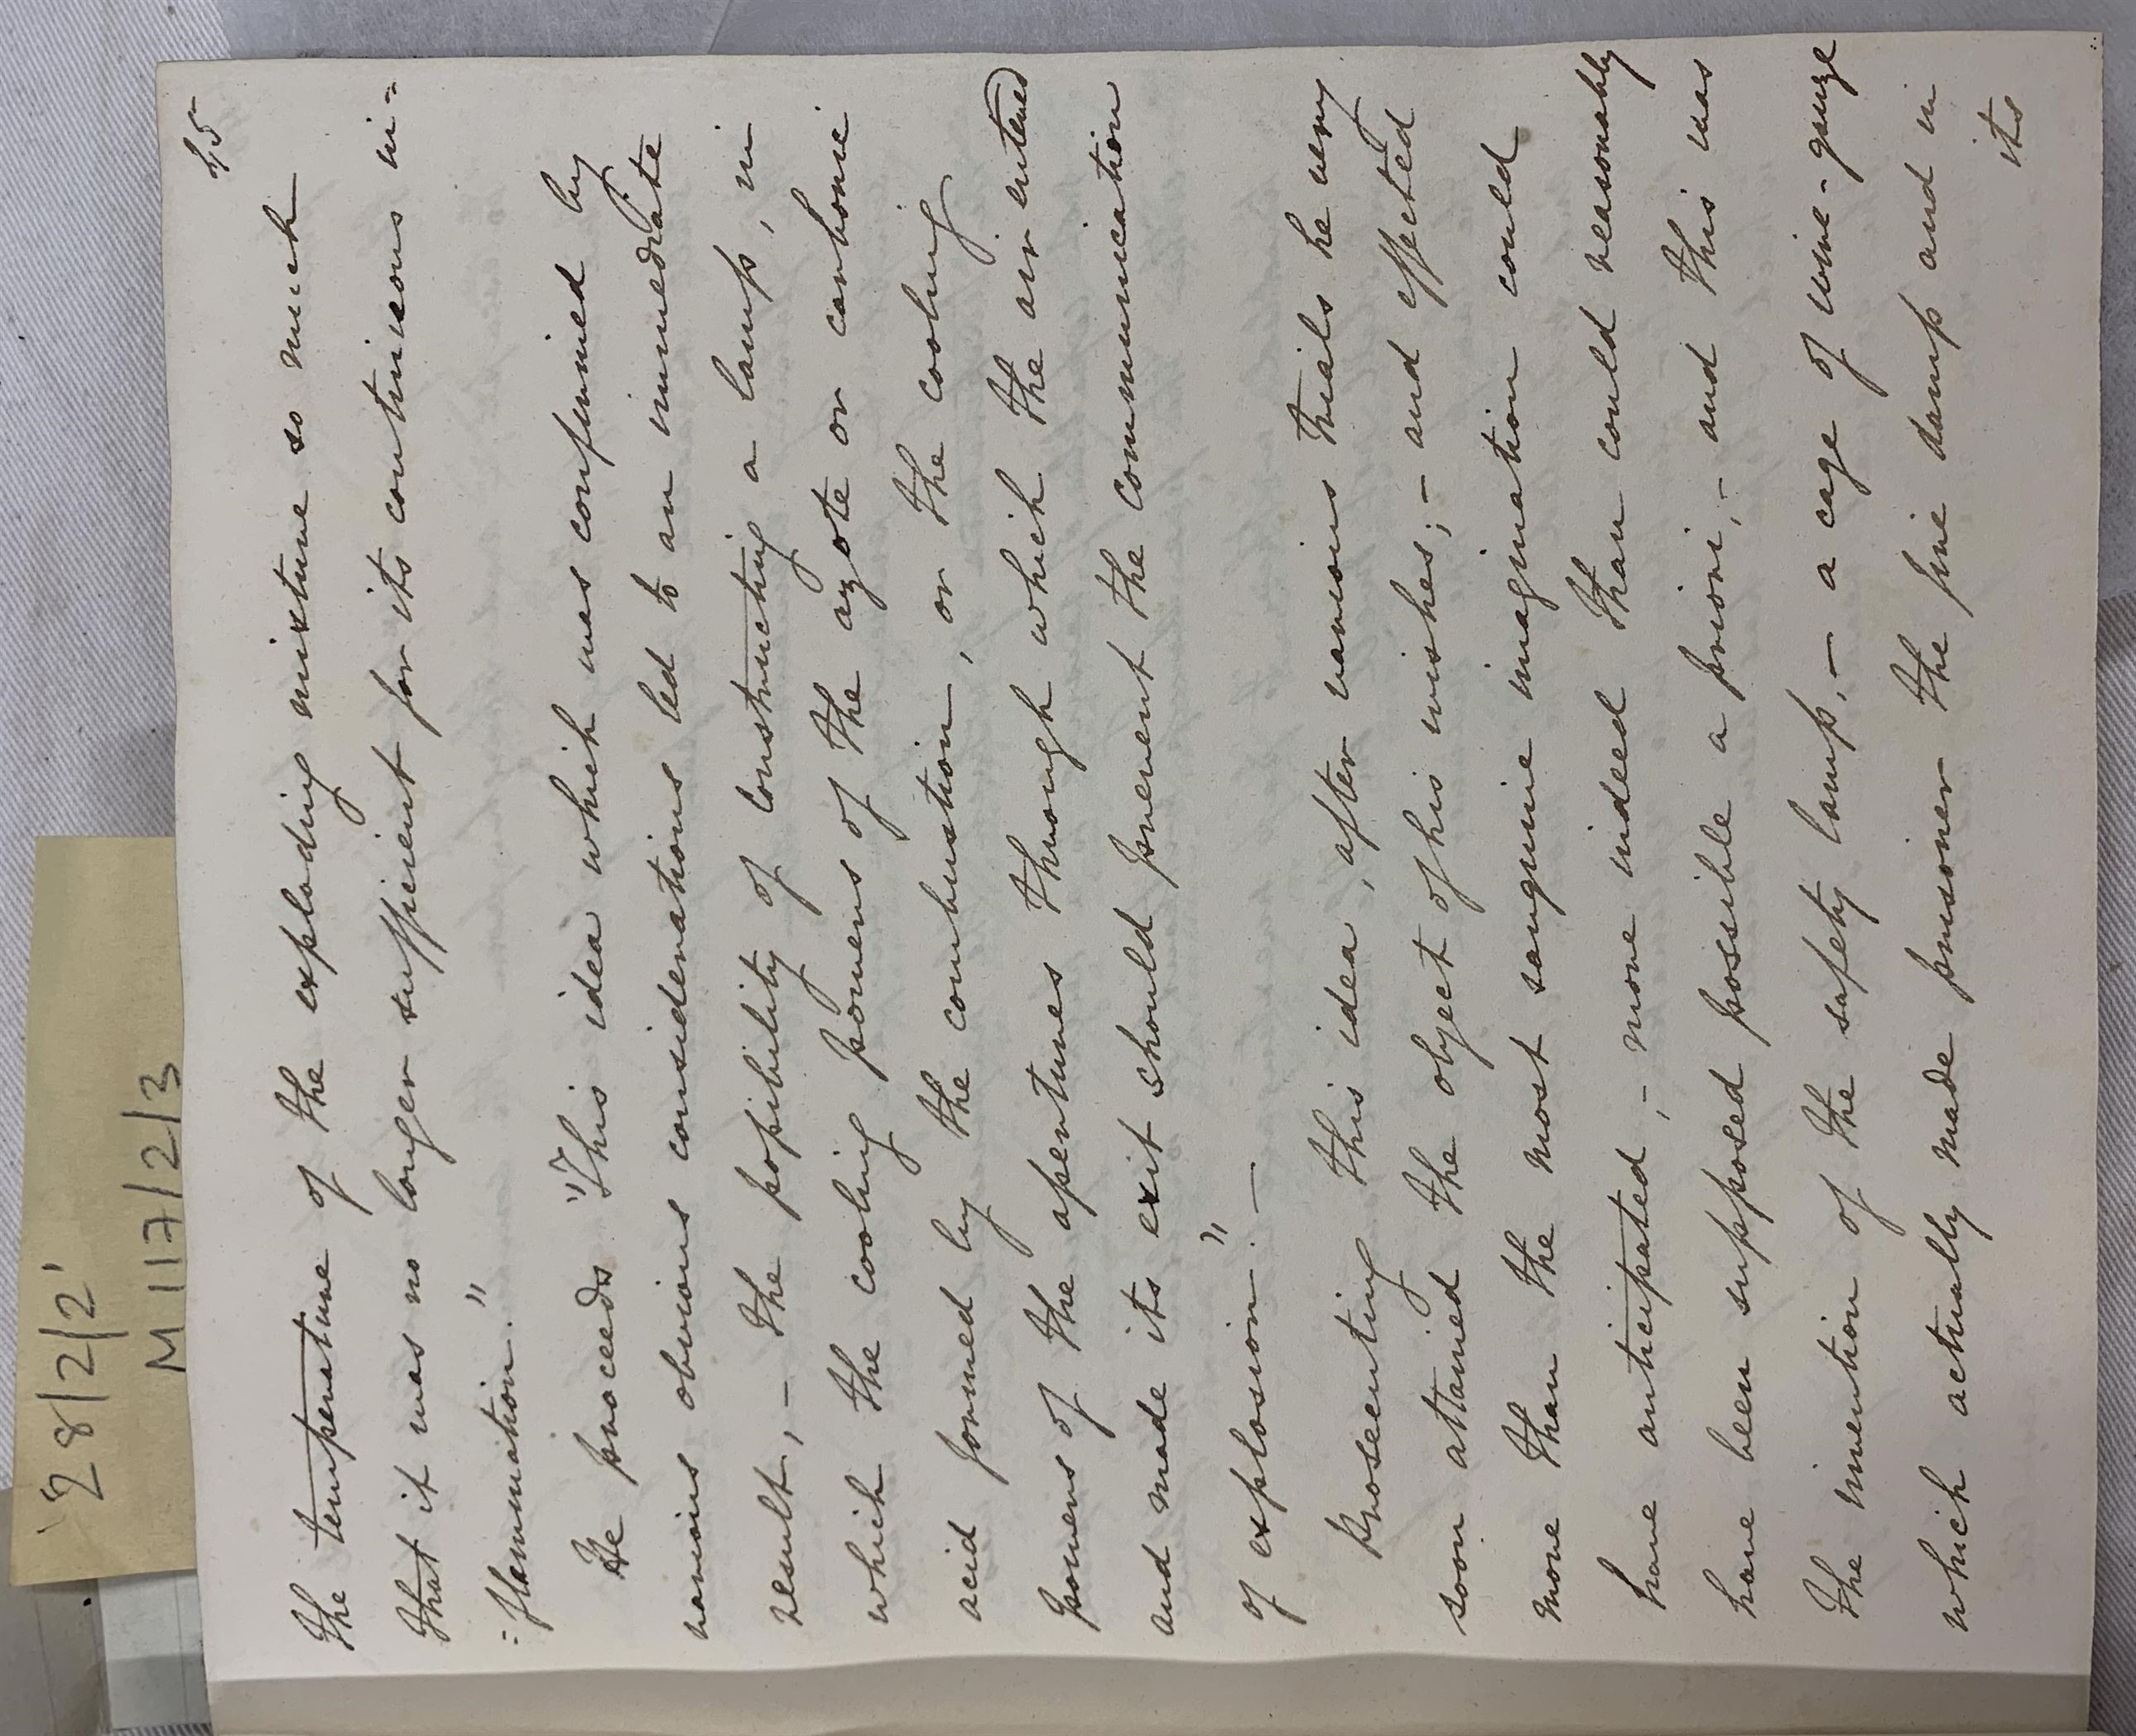 '28/2/2'
M117/2/3
45
the temperature of the exploding mixture so much
that it was no longer sufficient for its continuous in=
=flammation."
He proceeds "This idea which was confirmed by
various obvious considerations led to an immediate
result, – the possibility of constructing a lamp, in
which the cooling powers of the azote or carbonic
acid formed by the combustion, or the cooling
powers of the apertures through which the air entered
and made its exit should prevent the communication
of explosion." —
Prosecuting this idea, after various trials he very
soon attained the object of his wishes; – and effected
more than the most sanguine imagination could
have anticipated, – more indeed than could reasonably
have been supposed possible a priori, – and this was
the invention of the safety lamp, – a cage of wire-gauze
which actually made prisoner the fire damp and in
its